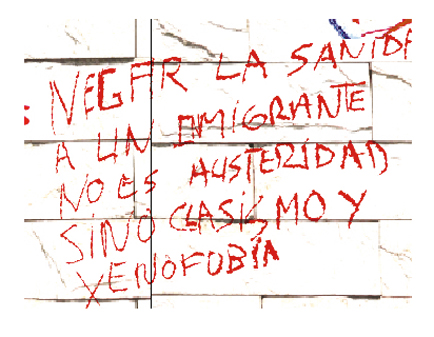 NEGAR LA SANIDA
A UN EMIGRANTE
NO ES AUSTERIDAD
SINO CLASISMO Y
XENOFOBIA